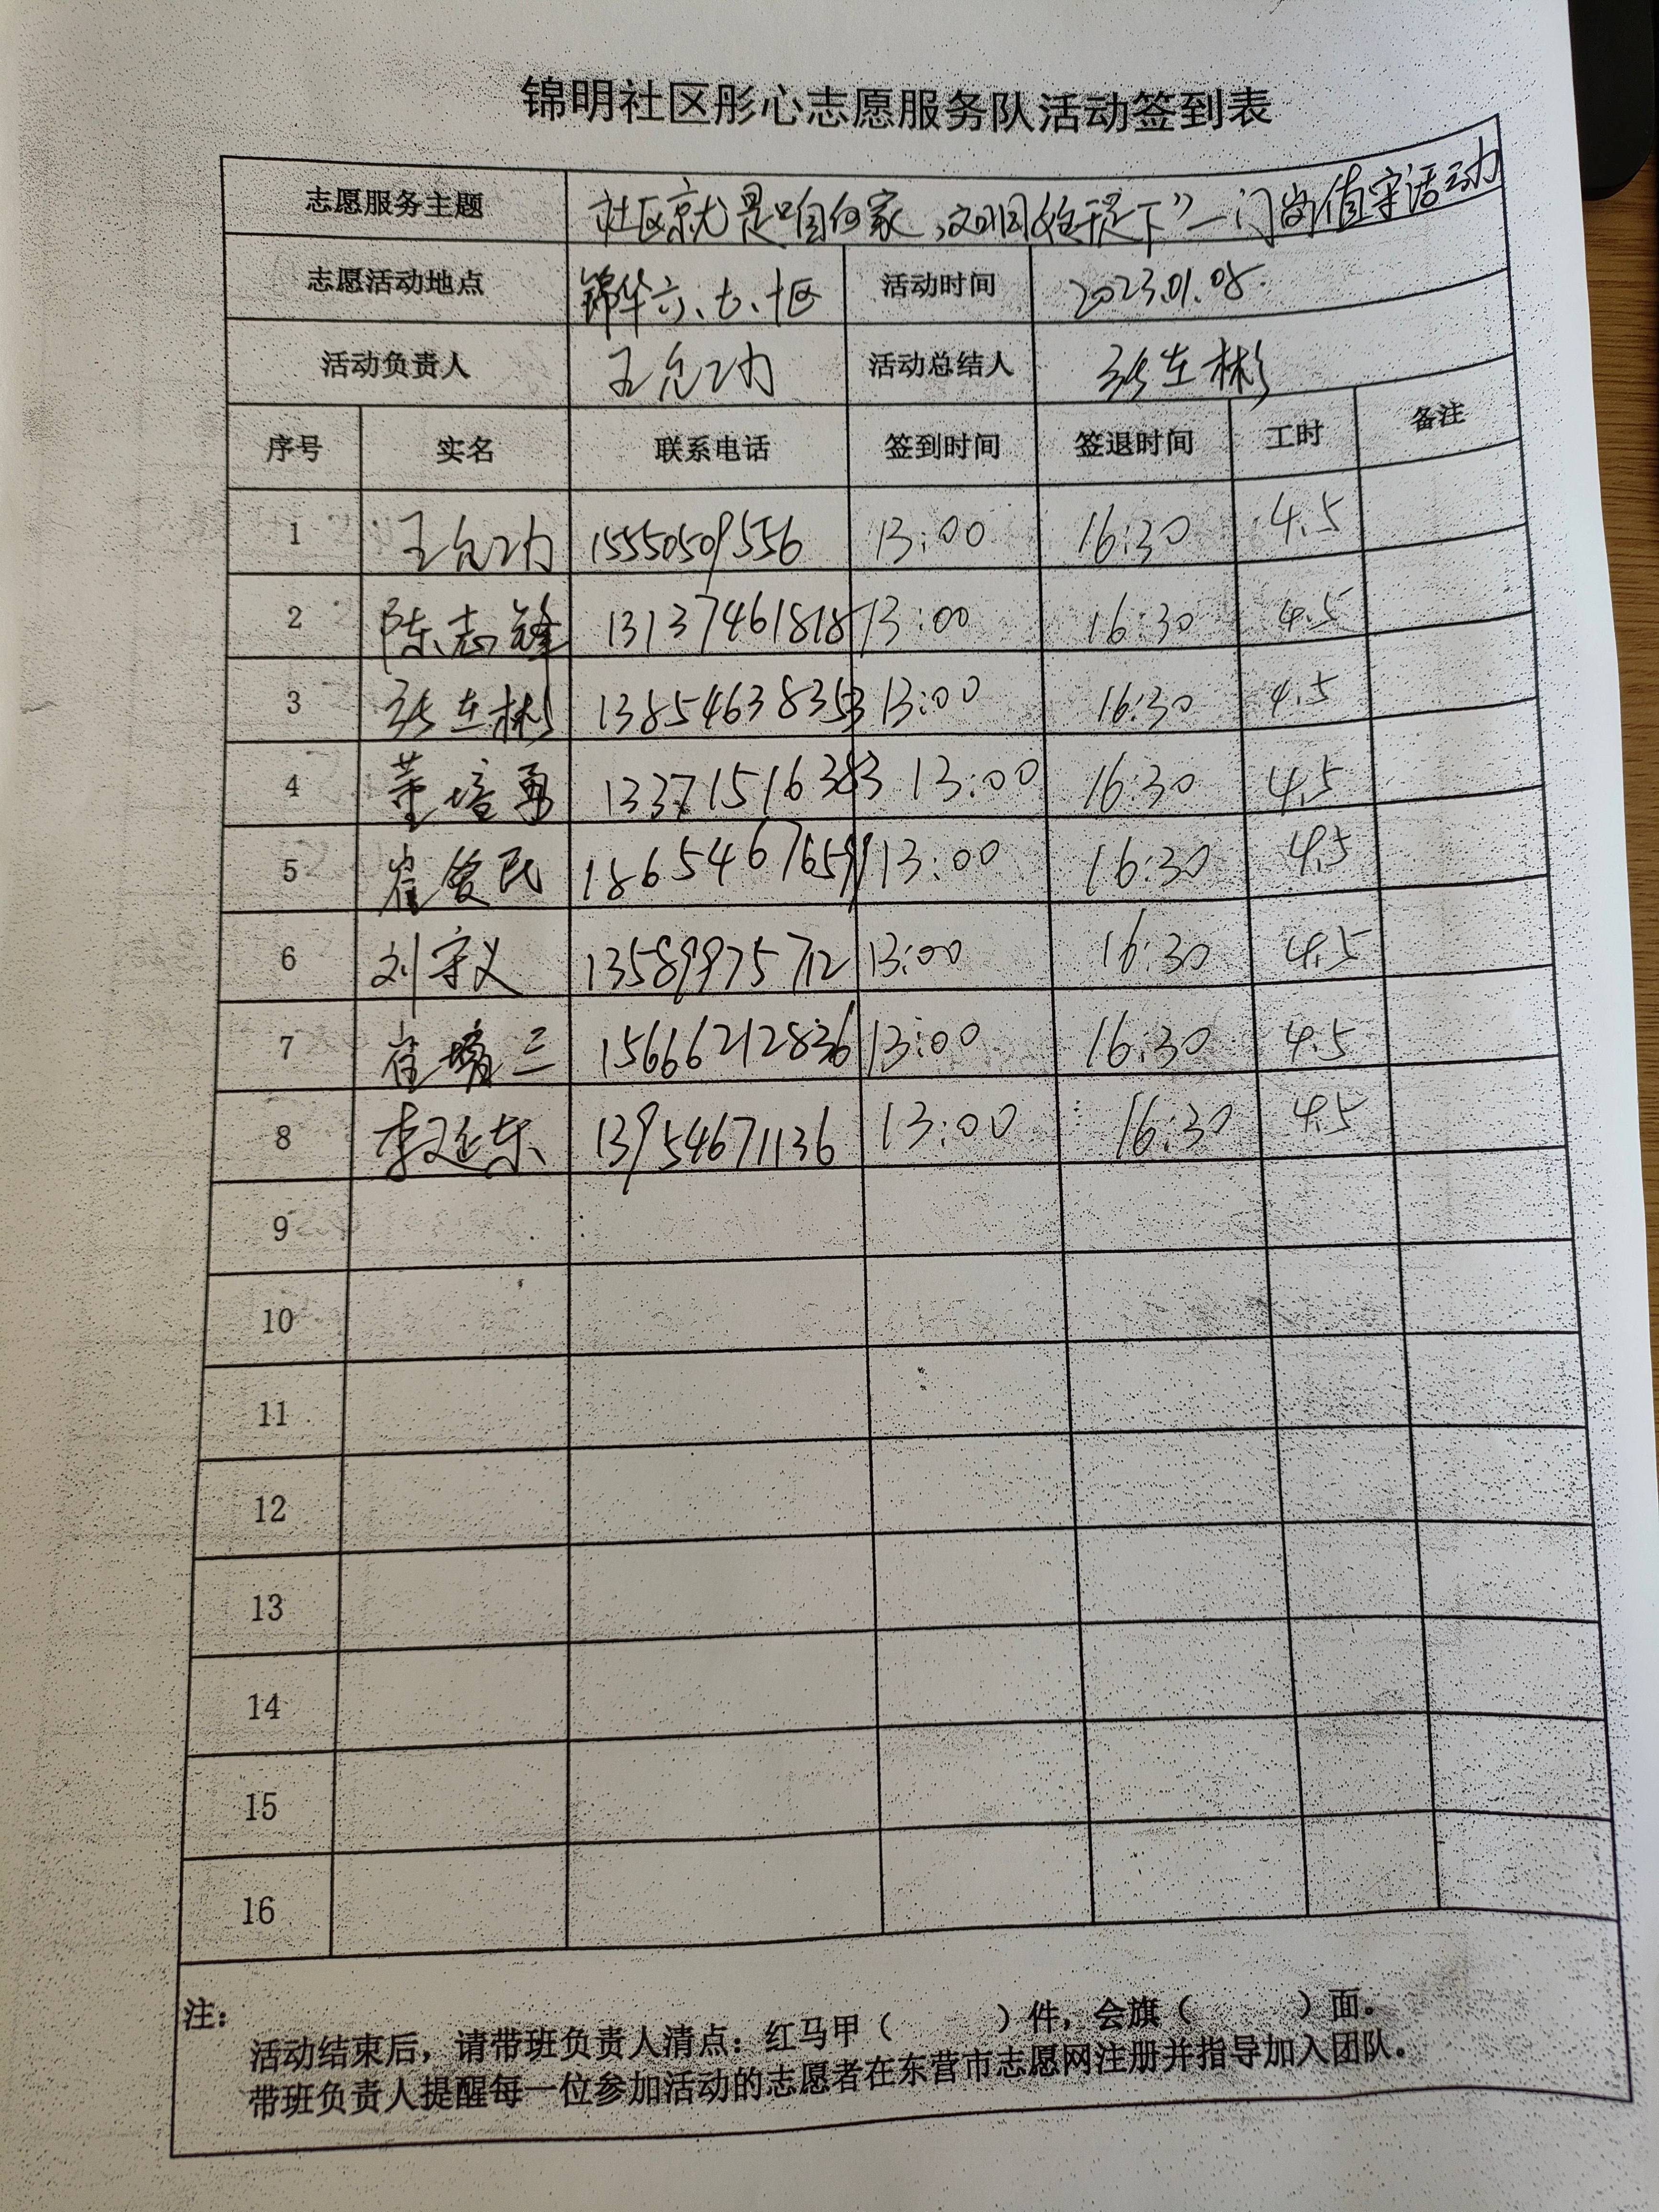 锦明社区彤心志愿服务队活动签到表
志愿服务主题 社区就是咱的家,文明 下"一门岗值守活动
志愿活动地点 锦华六、七、十区 活动时间 2023.01.08.
活动负责人 王 功 活动总结人 张在彬
序号 实名 联系电话 签到时间 签退时间 工时 备注
1 王 功 15550509556 13:00 16:30 4.5
2 陈志锋 13137461818 13:00 16:30 4.5
3 张在彬 13854638353 13:00 16:30 4.5
4 董培勇 13371516383 13:00 16:30 4.5
5 崔 民 18654676599 13:00 16:30 4.5
6 刘守义 13589975712 13:00 16:30 4.5
7 崔 三 15666212836 13:00 16:30 4.5
8 李延东 13954671136 13:00 16:30 4.5
9
10
11
12
13
14
15
16
注:
活动结束后,请带班负责人清点:红马甲( )件,会旗( )面。
带班负责人提醒每一位参加活动的志愿者在东营市志愿网注册并指导加入团队。